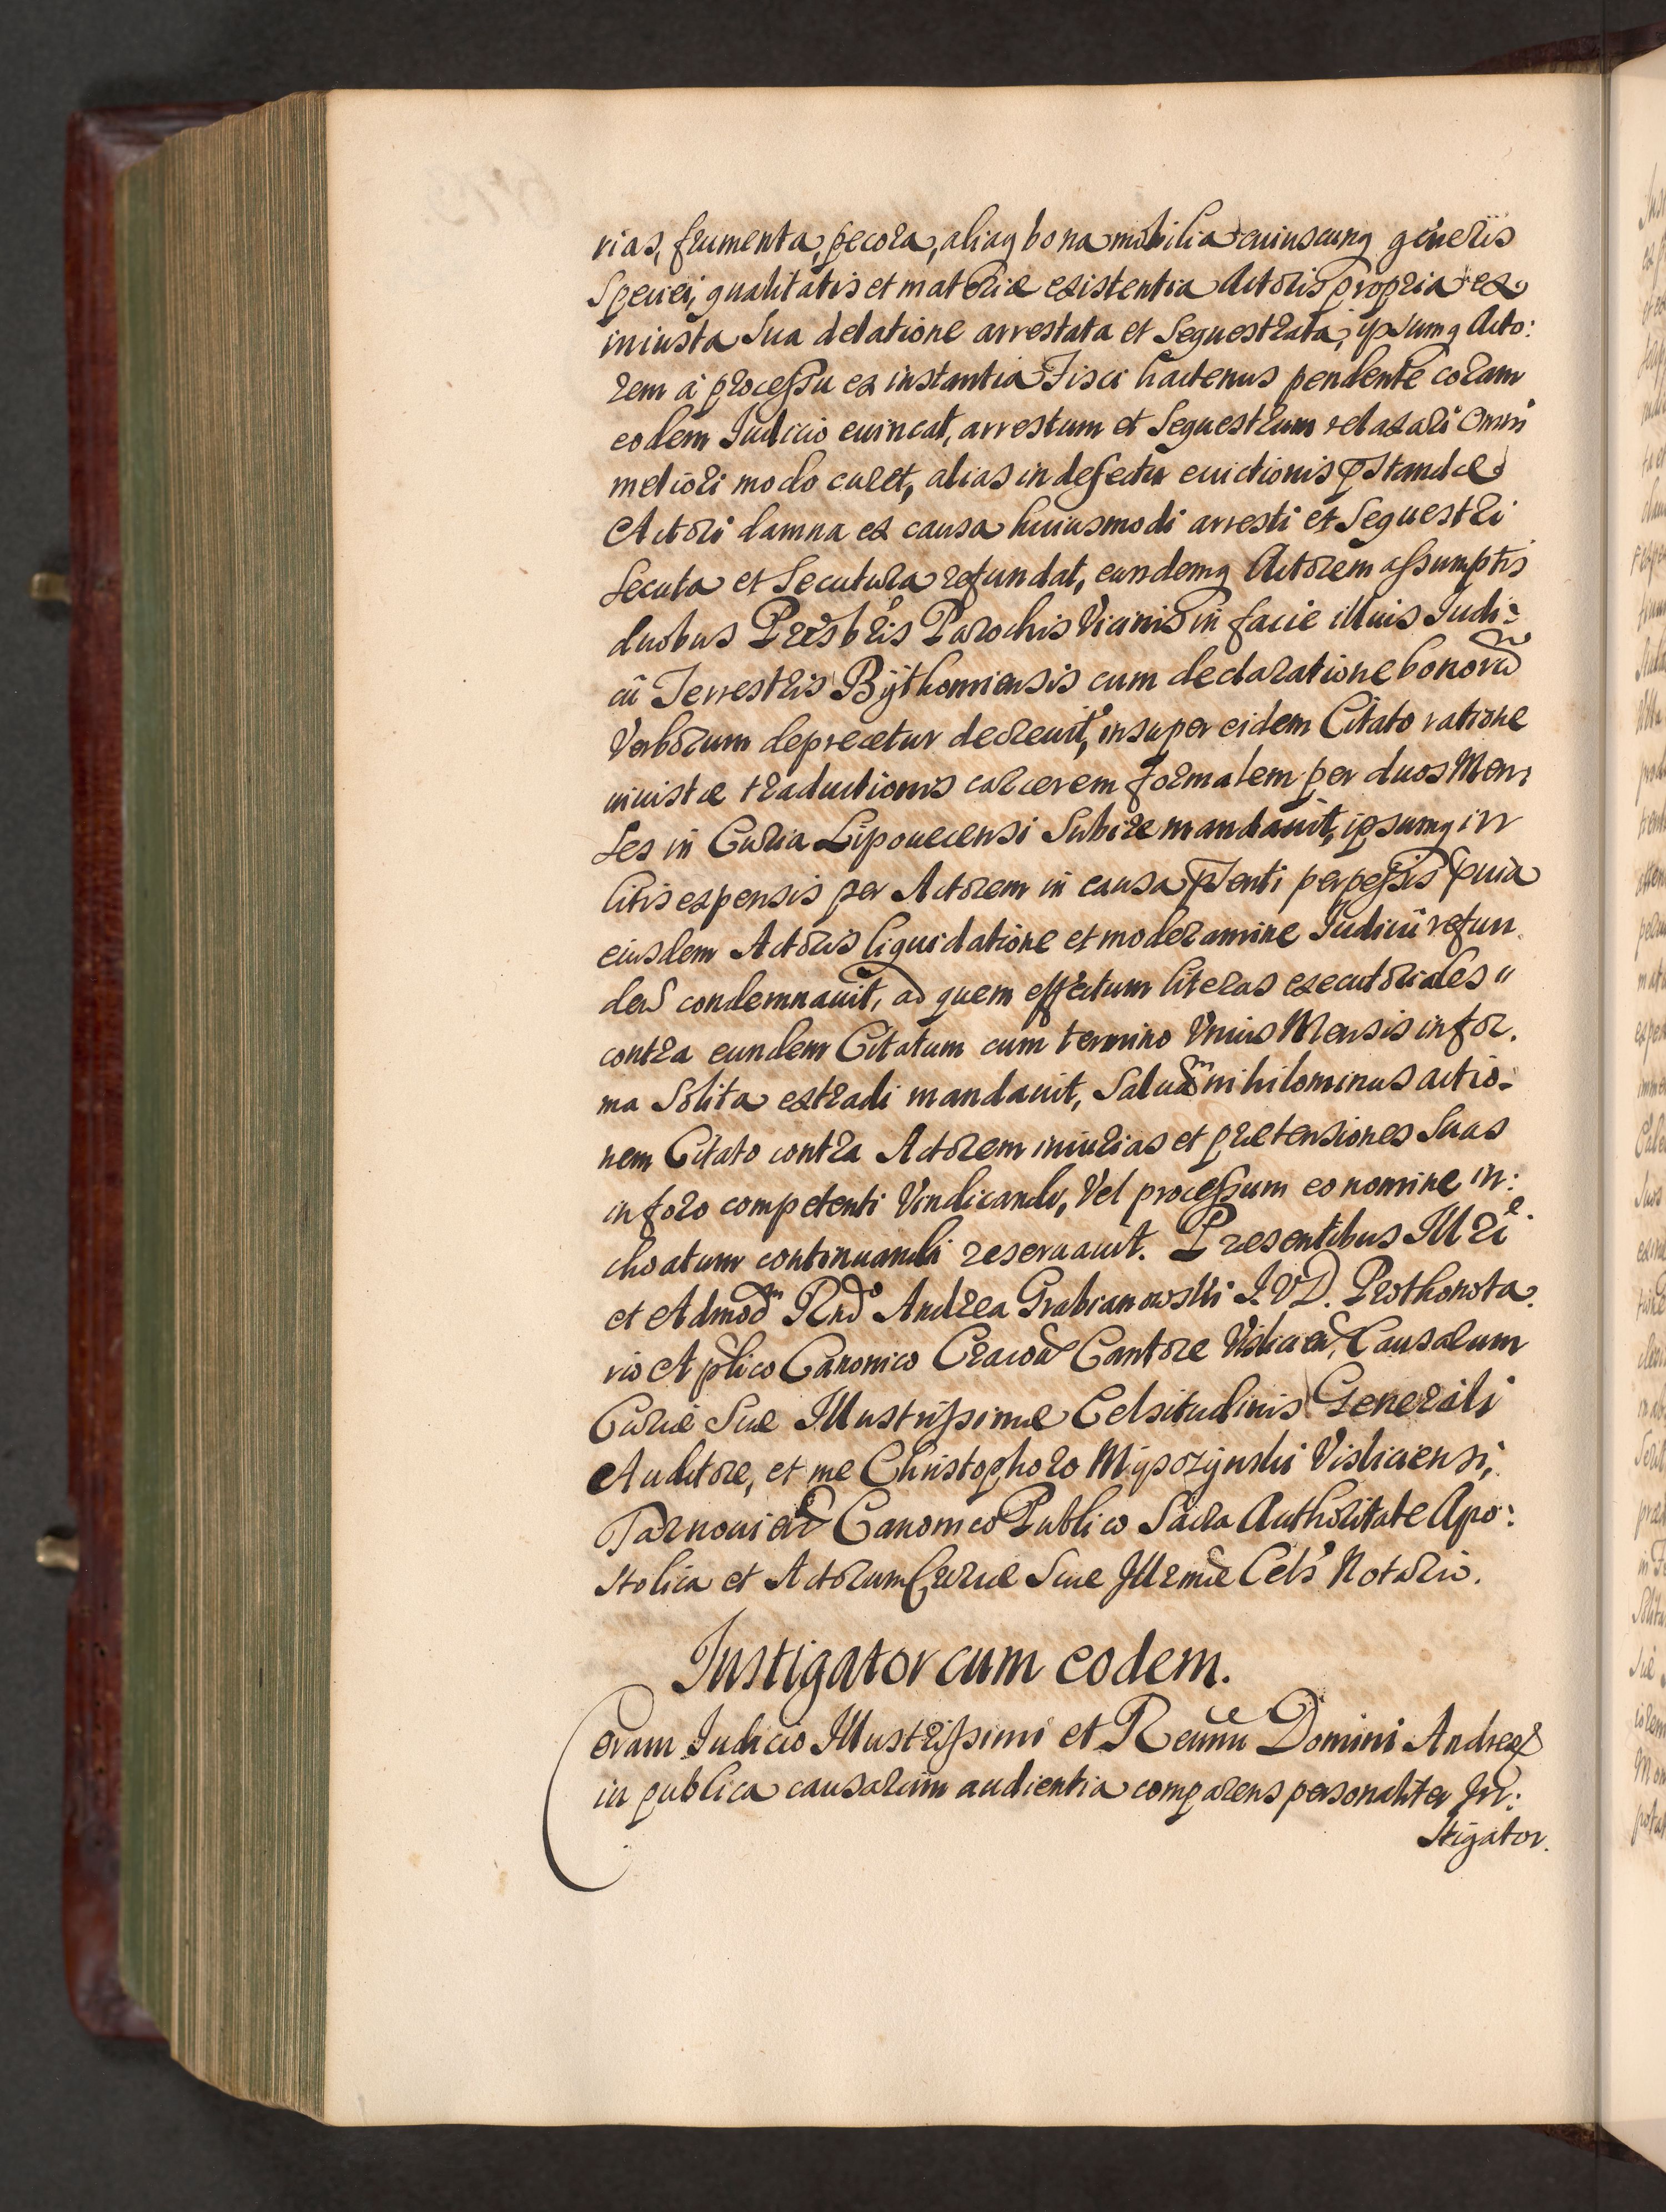 rias, frumenta, pecora, aliaq bona mobilia cuiuscunq generis
Speciei, qualitatis et materiæ existentia Actoris propria ex
iniusta Sua delatione arrestata et Sequestrata, ipsumq Acto:
rem à processu ex instantia Fisci hactenus pendente coram
eodem Iudicio euincat, arrestum et Sequestrum relaxari Omni
meliori modo curet, alias in defectu euictionis pstandæ
Actori damna ex causa huiusmodi arresti et Sequestri
Secuta et Secutura refundat, eundemq Actorem assumptis
duobus Presbris Parochis Vicinis in facie illius Iudi:
cii Terrestris Bythomiensis cum declaratione bonorũ
Verborum deprecetur decreuit, insuper eidem Citato ratione
iniustæ traductionis carcerem formalem per duos Men:
ses in Curia Lipouecensi Subire mandauit, ipsumq in
litis expensis per Actorem in causa pñti perpessis prvia
eiusdem Actoris liquidatione et moderamine Iudicii refun
den̄ condemnauit, ad quem effectum literas executoriales "
contra eundem Citatum cum termino Vnius Mensis in for.
ma Solita extradi mandauit, Saluam nihilominus actio.
nem Citato contra Actorem iniurias et prætensiones Suas
in foro competenti Vindicandi, Vel processum eo nomine in:
choatum continuandi reseruauit. Presentibus Illri
et Admod Rndo Andrea Grabianowski I.V.D. Prothonota.
rio Aplico Canonico Cracou Cantore Vislicien, Causarum
Curiæ Suæ Illustrissimæ Celsitudinis Generali
Auditore, et me Christophoro Mysozynski Visliciensi,
Tarnouien Canonico Publico Sacra Authoritate Apo:
Stolica et Actorum Curiæ Suæ Illrmæ Cels Notario.
Instigator cum eodem.
Coram Iudicio Illustrissimi et Reuñu Domini Andreæ
in publica causarum audientia comparens personaliter In:
Stigator.